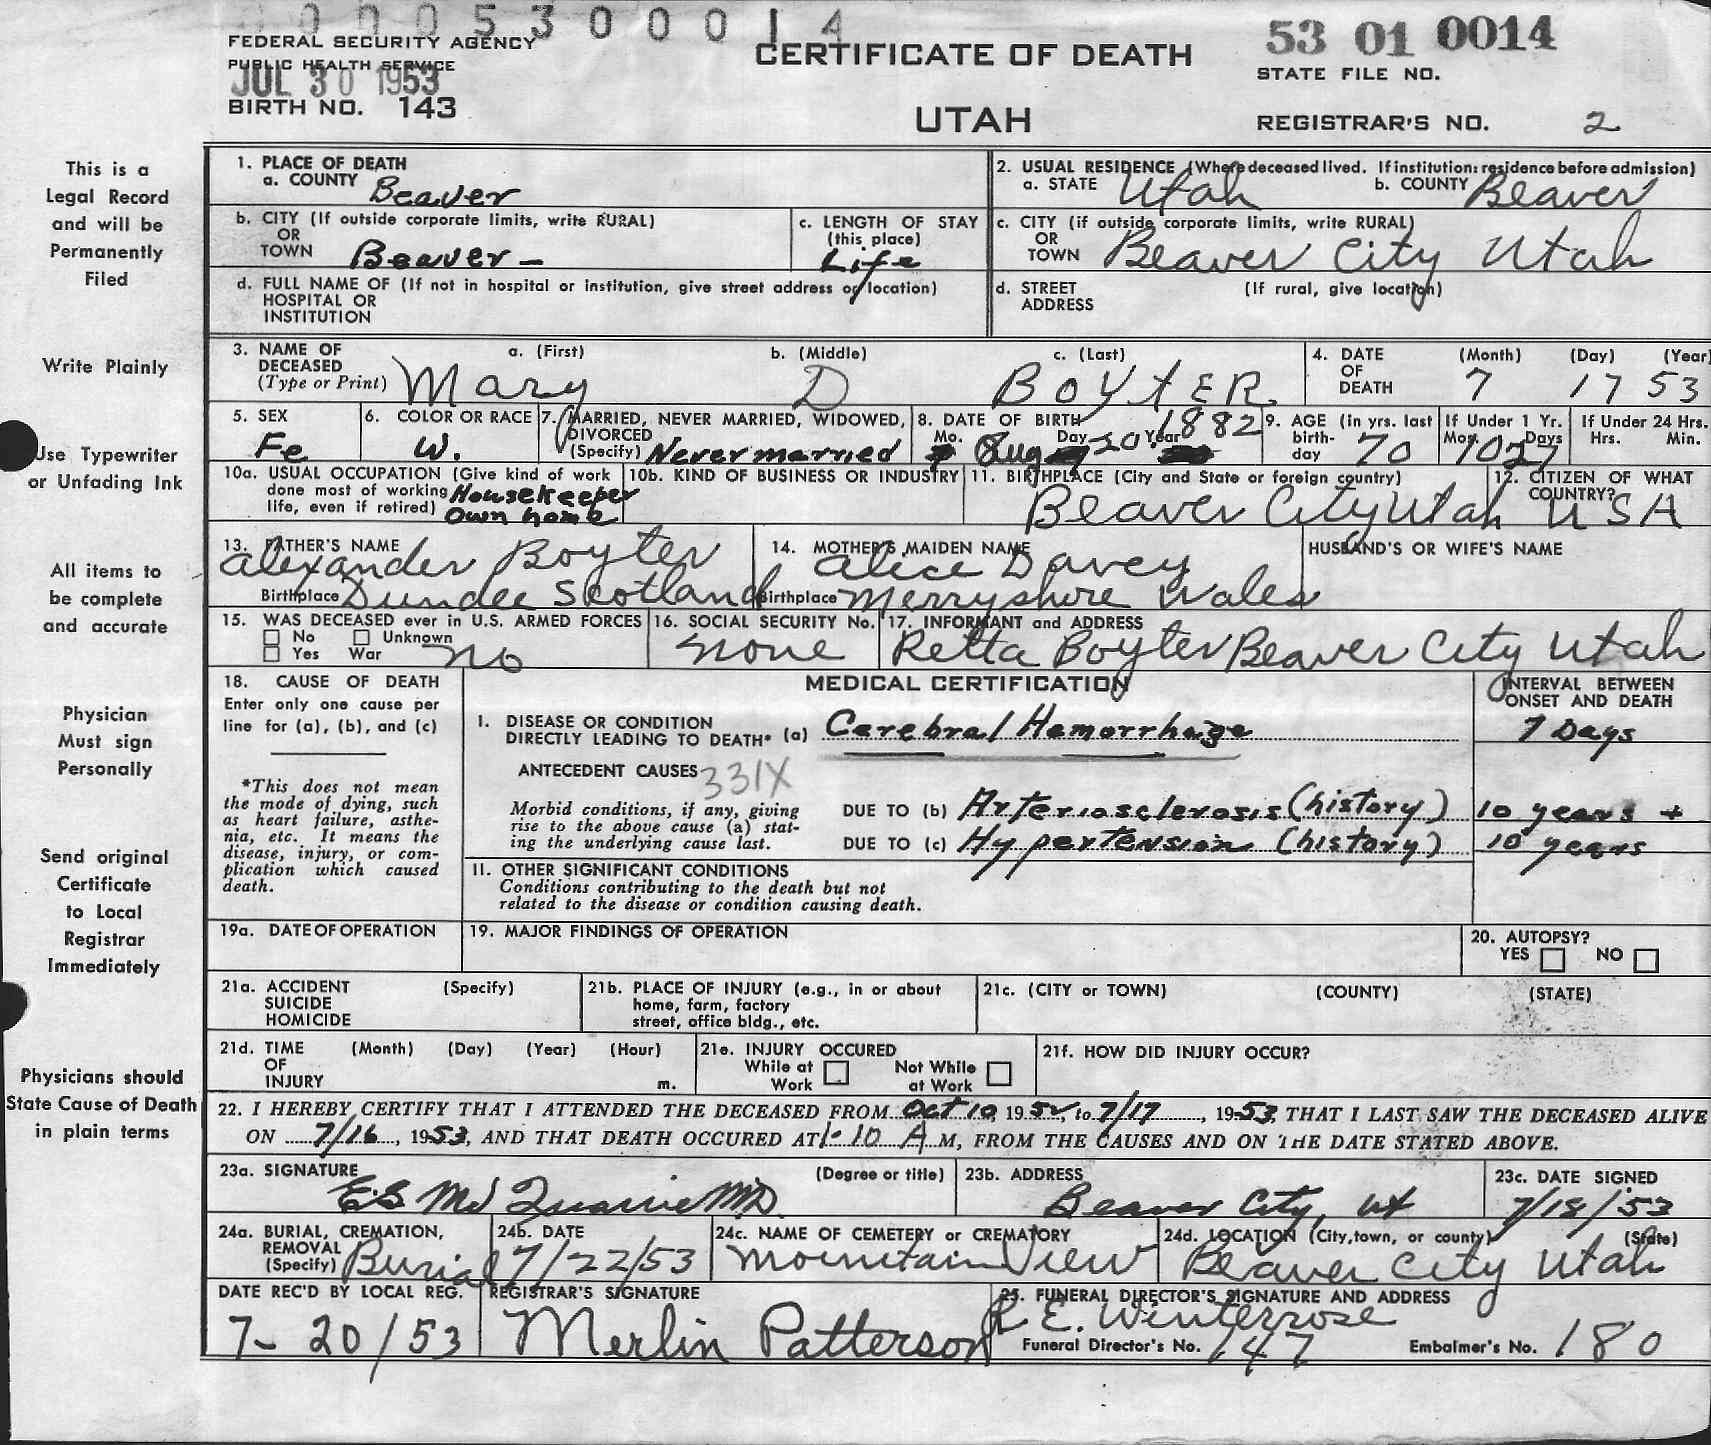 0 0 0 0 5 3 0 0 0 1 4
FEDERAL SECURITY AGENCY
PUBLIC HEALTH SERVICE
JUL 30 1953
BIRTH NO. 143
CERTIFICATE OF DEATH
UTAH
53 01 0014
STATE FILE NO.
REGISTRAR'S NO. 2
This is a
Legal Record
and will be
Permanently
Filed
Write Plainly
Use Typewriter
or Unfading Ink
All items to
be complete
and accurate
Physician
Must sign
Personally
Send original
Certificate
to Local
Registrar
Immediately
Physicians should
State Cause of Death
in plain terms
1. PLACE OF DEATH
a. COUNTY Beaver
2. USUAL RESIDENCE (Where deceased lived. If institution: residence before admission)
a. STATE Utah b. COUNTY Beaver
b. CITY (If outside corporate limits, write RURAL)
OR
TOWN Beaver -
c. LENGTH OF STAY
(this place)
Life
c. CITY (if outside corporate limits, write RURAL)
OR
TOWN Beaver City Utah
d. FULL NAME OF (If not in hospital or institution, give street address or location)
HOSPITAL OR
INSTITUTION
d. STREET (If rural, give location)
ADDRESS
3. NAME OF a. (First) b. (Middle) c. (Last)
DECEASED
(Type or Print) Mary D BOYTER
4. DATE (Month) (Day) (Year)
OF
DEATH 7 17 53
5. SEX
Fe
6. COLOR OR RACE
W.
7. MARRIED, NEVER MARRIED, WIDOWED,
DIVORCED
(Specify) Never married
8. DATE OF BIRTH 1882
Mo. Day Year
Aug 20
9. AGE (in yrs. last
birth-
day 70
If Under 1 Yr.
Mos. Days
10 27
If Under 24 Hrs.
Hrs. Min.
10a. USUAL OCCUPATION (Give kind of work
done most of working Housekeeper
life, even if retired) Own home
10b. KIND OF BUSINESS OR INDUSTRY
11. BIRTHPLACE (City and State or foreign country)
Beaver City Utah
12. CITIZEN OF WHAT
COUNTRY?
USA
13. FATHER'S NAME
Alexander Boyter
Birthplace Dundee Scotland
14. MOTHER'S MAIDEN NAME
Alice Davey
Birthplace Merryshire Wales
HUSBAND'S OR WIFE'S NAME
15. WAS DECEASED ever in U.S. ARMED FORCES
No Unknown
Yes War no
16. SOCIAL SECURITY No.
none
17. INFORMANT and ADDRESS
Retta Boyter Beaver City Utah
18. CAUSE OF DEATH
Enter only one cause per
line for (a), (b), and (c)
*This does not mean
the mode of dying, such
as heart failure, asthe-
nia, etc. It means the
disease, injury, or com-
plication which caused
death.
MEDICAL CERTIFICATION
INTERVAL BETWEEN
ONSET AND DEATH
I. DISEASE OR CONDITION
DIRECTLY LEADING TO DEATH* (a) Cerebral Hemorrhage 7 Days
ANTECEDENT CAUSES 331X
Morbid conditions, if any, giving
rise to the above cause (a) stat-
ing the underlying cause last.
DUE TO (b) Arteriosclerosis (history) 10 years +
DUE TO (c) Hypertension (history) 10 years
11. OTHER SIGNIFICANT CONDITIONS
Conditions contributing to the death but not
related to the disease or condition causing death.
19a. DATE OF OPERATION
19. MAJOR FINDINGS OF OPERATION
20. AUTOPSY?
YES NO
21a. ACCIDENT (Specify)
SUICIDE
HOMICIDE
21b. PLACE OF INJURY (e.g., in or about
home, farm, factory
street, office bldg., etc.
21c. (CITY or TOWN) (COUNTY) (STATE)
21d. TIME (Month) (Day) (Year) (Hour)
OF
INJURY m.
21e. INJURY OCCURED
While at Not While
Work at Work
21f. HOW DID INJURY OCCUR?
22. I HEREBY CERTIFY THAT I ATTENDED THE DECEASED FROM Oct 10, 1952, to 7/17, 1953, THAT I LAST SAW THE DECEASED ALIVE
ON 7/16, 1953, AND THAT DEATH OCCURED AT 1-10 A M, FROM THE CAUSES AND ON THE DATE STATED ABOVE.
23a. SIGNATURE (Degree or title)
MD
23b. ADDRESS
Beaver City, Ut
23c. DATE SIGNED
7/18/53
24a. BURIAL, CREMATION,
REMOVAL
(Specify) Burial
24b. DATE
7/22/53
24c. NAME OF CEMETERY or CREMATORY
Mountain View
24d. LOCATION (City, town, or county) (State)
Beaver City Utah
DATE REC'D BY LOCAL REG.
7-20/53
REGISTRAR'S SIGNATURE
Merlin Patterson
25. FUNERAL DIRECTOR'S SIGNATURE AND ADDRESS
E. Winterrose
Funeral Director's No. 147 Embalmer's No. 180